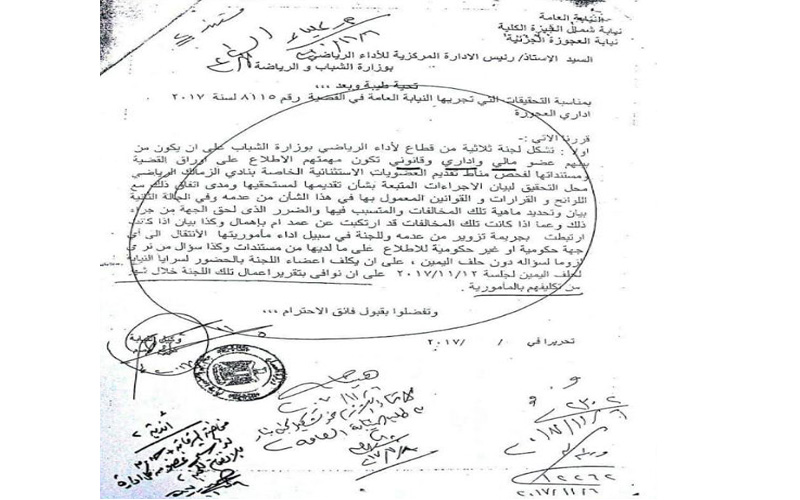 النيابة العامة
نيابة شمال الجيزة الكلية
نيابة العجوزة الجزئية
السيد الاستاذ/ رئيس الادارة المركزية للأداء الرياضي
بوزارة الشباب و الرياضة
تحية طيبة وبعد ،،،
بمناسبة التحقيقات التي تجريها النيابة العامة في القضية رقم ٨١١٥ لسنة ٢٠١٧
اداري العجوزة
قررنا الاتي :-
اولا : تشكل لجنة ثلاثية من قطاع لأداء الرياضي بوزارة الشباب على ان يكون من
بينهم عضو مالي واداري وقانوني تكون مهمتهم الاطلاع على اوراق القضية
ومستنداتها لفحص مناط تقديم العضويات الاستثنائية الخاصة بنادي الزمالك الرياضي
محل التحقيق لبيان الاجراءات المتبعة بشأن تقديمها لمستحقيها ومدى اتفاق ذلك مع
اللوائح و القرارات و القوانين المعمول بها في هذا الشأن من عدمه وفي الحالة الثانية
بيان وتحديد ماهية تلك المخالفات والمتسبب فيها والضرر الذى لحق الجهة من جراء
ذلك وعما اذا كانت تلك المخالفات قد ارتكبت عن عمد ام بإهمال وكذا بيان اذا كانت
ارتبطت بجريمة تزوير من عدمه وللجنة في سبيل اداء مأموريتها الأنتقال الى أي
جهة حكومية او غير حكومية للاطلاع على ما لديها من مستندات وكذا سؤال من ترى
لزوما لسؤاله دون حلف اليمين ، على ان يكلف اعضاء اللجنة بالحضور لسرايا النيابة
لحلف اليمين لجلسة ٢٠١٧/١١/١٢ على ان نوافى بتقرير اعمال تلك اللجنة خلال شهر
من تكليفهم بالمأمورية .
وتفضلوا بقبول فائق الاحترام ،،،
تحريرا في / / ٢٠١٧
وكيل النيابة
٢٠١٧/١١/٦